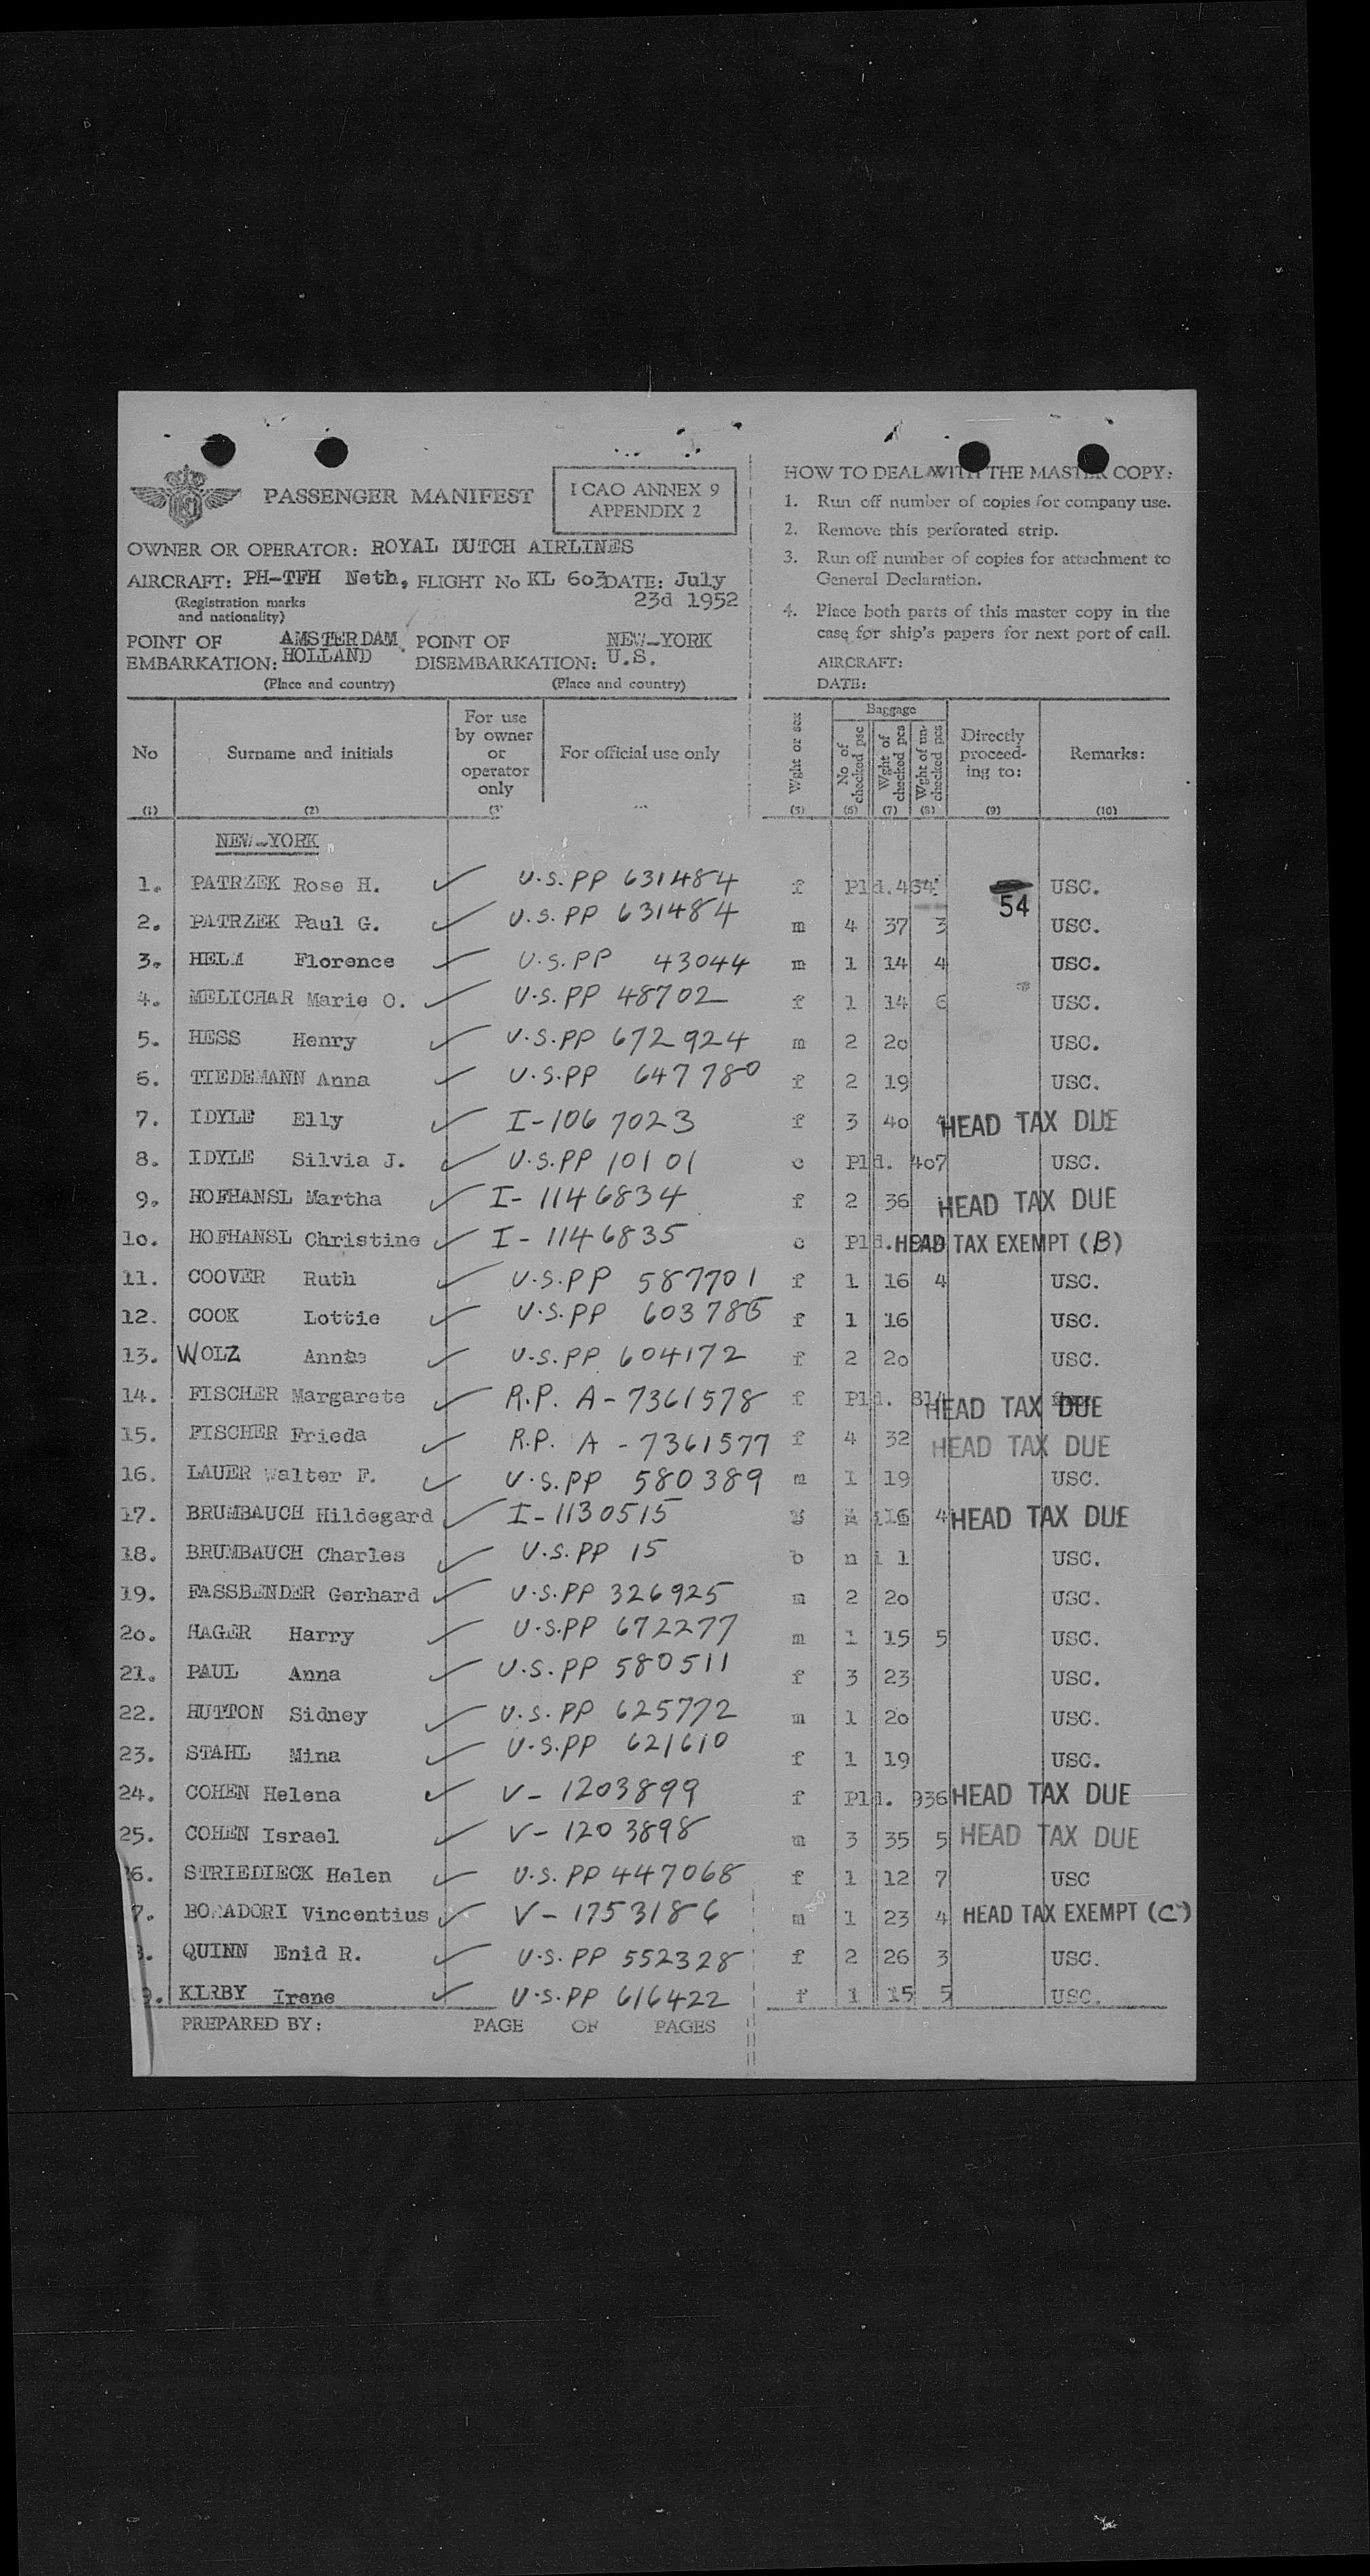 PASSENGER MANIFEST
I CAO ANNEX 9
APPENDIX 2
OWNER OR OPERATOR: ROYAL DUTCH AIRLINES
AIRCRAFT: PH-TFH Neth. FLIGHT No KL 603 DATE: July
23d 1952
(Registration marks
and nationality)
POINT OF EMBARKATION: AMSTERDAM HOLLAND
POINT OF DISEMBARKATION: NEW-YORK U.S.
(Place and country) (Place and country)
HOW TO DEAL WITH THE MASTER COPY:
1. Run off number of copies for company use.
2. Remove this perforated strip.
3. Run off number of copies for attachment to
General Declaration.
4. Place both parts of this master copy in the
case for ship's papers for next port of call.
AIRCRAFT:
DATE:
No
(1)
Surname and initials
(2)
For use
by owner
or
operator
only
For official use only
Wght or sex
(5)
Baggage
No of checked psc
(6)
Wght of checked pcs
(7)
Wght of un-checked pcs
(8)
Directly
proceed-
ing to:
(9)
Remarks:
(10)
NEW-YORK
1. PATRZEK Rose H. U.S. PP 631484 f Pld. 434 USC.
54
2. PATRZEK Paul G. U.S. PP 631484 m 4 37 3 USC.
3. HELM Florence U.S. PP 43044 m 1 14 4 USC.
4. MELICHAR Marie O. U.S. PP 48702 f 1 14 6 USC.
5. HESS Henry U.S. PP 672924 m 2 20 USC.
6. TIEDEMANN Anna U.S. PP 647780 f 2 19 USC.
7. IDYLE Elly I-1067023 f 3 40 HEAD TAX DUE
8. IDYLE Silvia J. U.S. PP 10101 c Pld. 407 USC.
9. HOFHANSL Martha I-1146834 f 2 36 HEAD TAX DUE
10. HOFHANSL Christine I-1146835 c Pld. HEAD TAX EXEMPT (B)
11. COOVER Ruth U.S. PP 587701 f 1 16 4 USC.
12. COOK Lottie U.S. PP 603785 f 1 16 USC.
13. WOLZ U.S. PP 604172 f 2 20 USC.
14. FISCHER Margarete R.P. A-7361578 f Pld. HEAD TAX DUE
15. FISCHER Frieda R.P. A-7361577 f 4 32 HEAD TAX DUE
16. LAUER Walter F. U.S. PP 580389 m 1 19 USC.
17. BRUMBAUCH Hildegard I-1130515 16 4 HEAD TAX DUE
18. BRUMBAUCH Charles U.S. PP 15 b n i l USC.
19. FASSBENDER Gerhard U.S. PP 326925 m 2 20 USC.
20. HAGER Harry U.S. PP 672277 m 1 15 5 USC.
21. PAUL Anna U.S. PP 580511 f 3 23 USC.
22. HUTTON Sidney U.S. PP 625772 m 1 20 USC.
23. STAHL Mina U.S. PP 621610 f 1 19 USC.
24. COHEN Helena V-1203899 f Pld. 936 HEAD TAX DUE
25. COHEN Israel V-1203898 m 3 35 5 HEAD TAX DUE
6. STRIEDIECK Helen U.S. PP 447068 f 1 12 7 USC
7. Vincentius V-1753186 m 1 23 4 HEAD TAX EXEMPT (C)
QUINN Enid R. U.S. PP 552328 f 2 26 3 USC.
9. KIRBY Irene U.S. PP 616422 f 1 15 5 USC.
PREPARED BY: PAGE OF PAGES